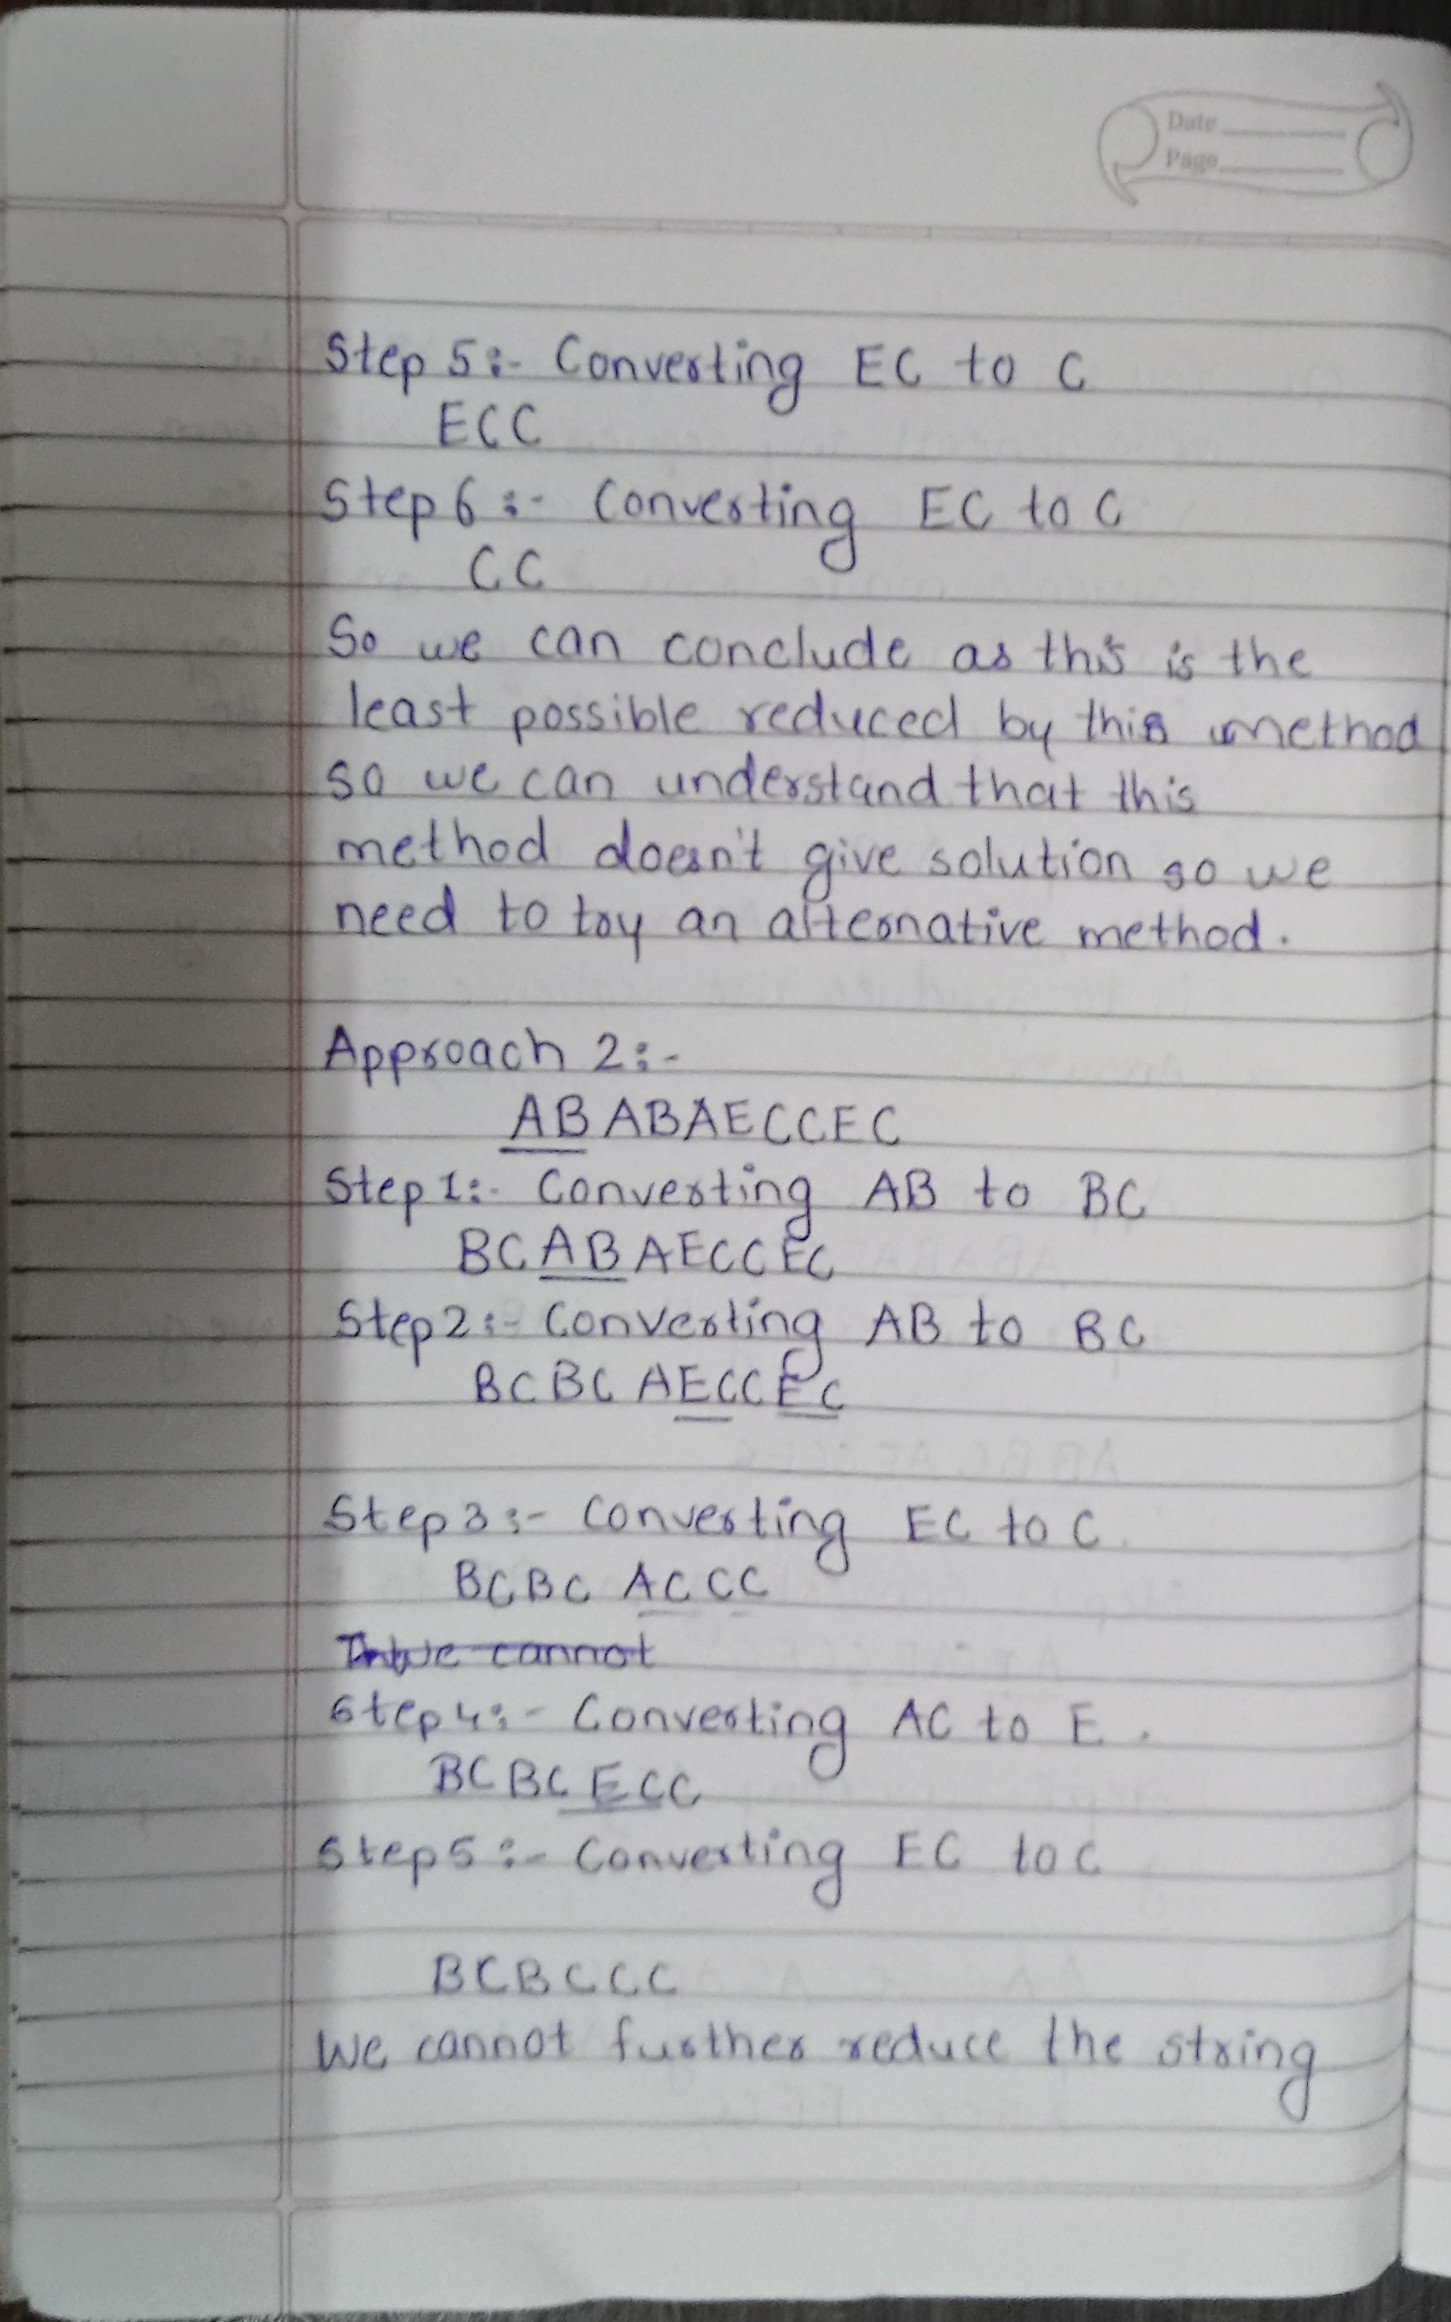 Date
Page
Step 5:- Converting EC to C
ECC
Step 6:- Converting EC to C
CC
So we can conclude as this is the
least possible reduced by this method
so we can understand that this
method doesn't give solution so we
need to try an alternative method.
Approach 2:-
ABABAECCEC
Step 1:- Converting AB to BC
BCABAECCEC
Step 2:- Converting AB to BC
BCBCAECCEC
Step 3:- Converting EC to C.
BCBC ACCC
we cannot
Step 4:- Converting AC to E.
BCBCECC
Step 5:- Converting EC to C
BCBCCC
We cannot further reduce the string